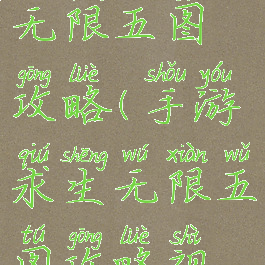 无限五图
gōng lüè shǒu yóu
攻略(手游
qiú shēng wú xiàn wǔ
求生无限五
tú gōng lüè shì
图攻略视